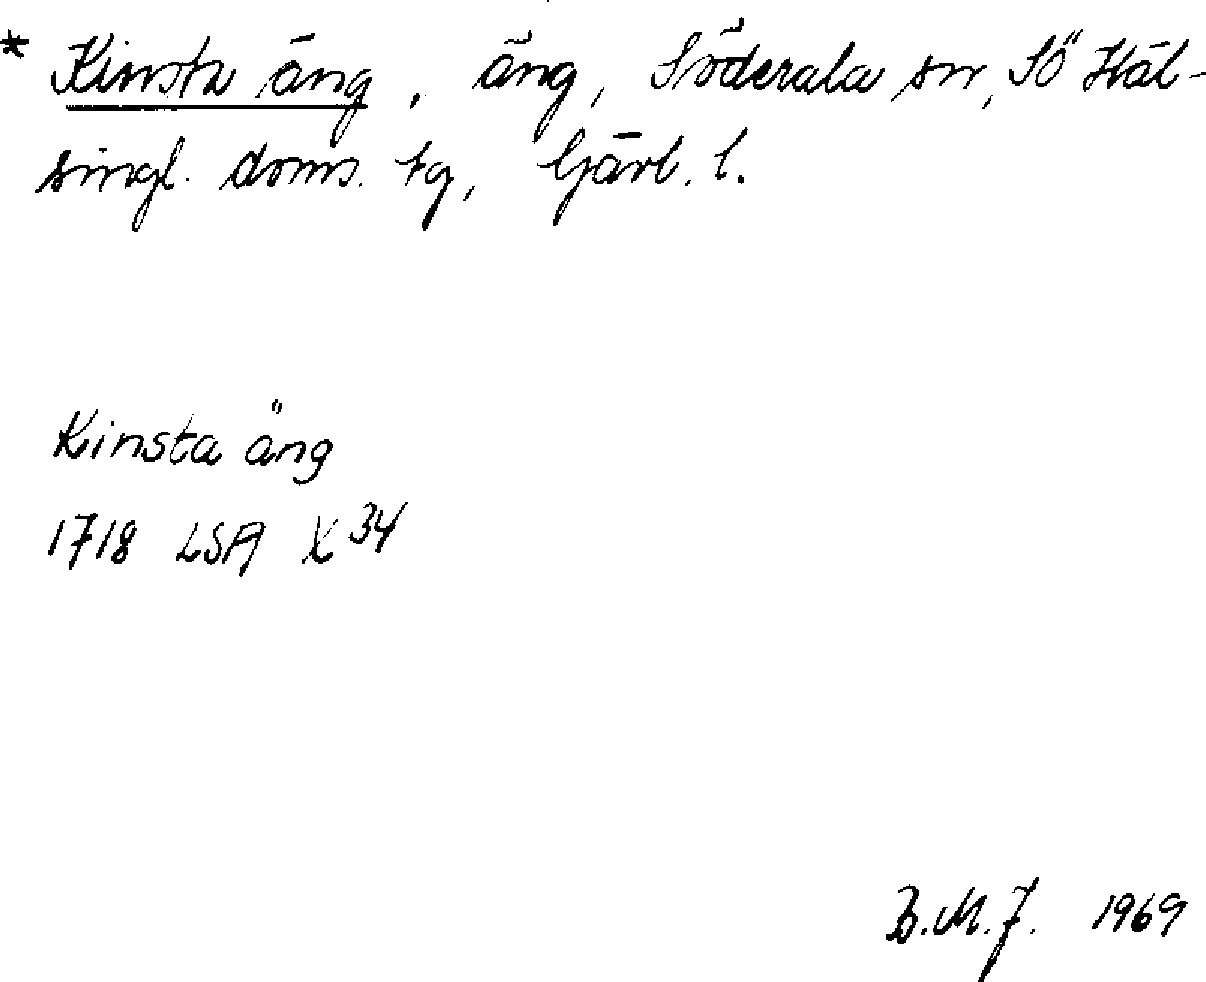 * Kinsta äng, äng, Söderala sn, Sö Häl-
singl. doms. tg, Gävl. l.
Kinsta äng
1718 LSA X 34
B.M.J. 1969